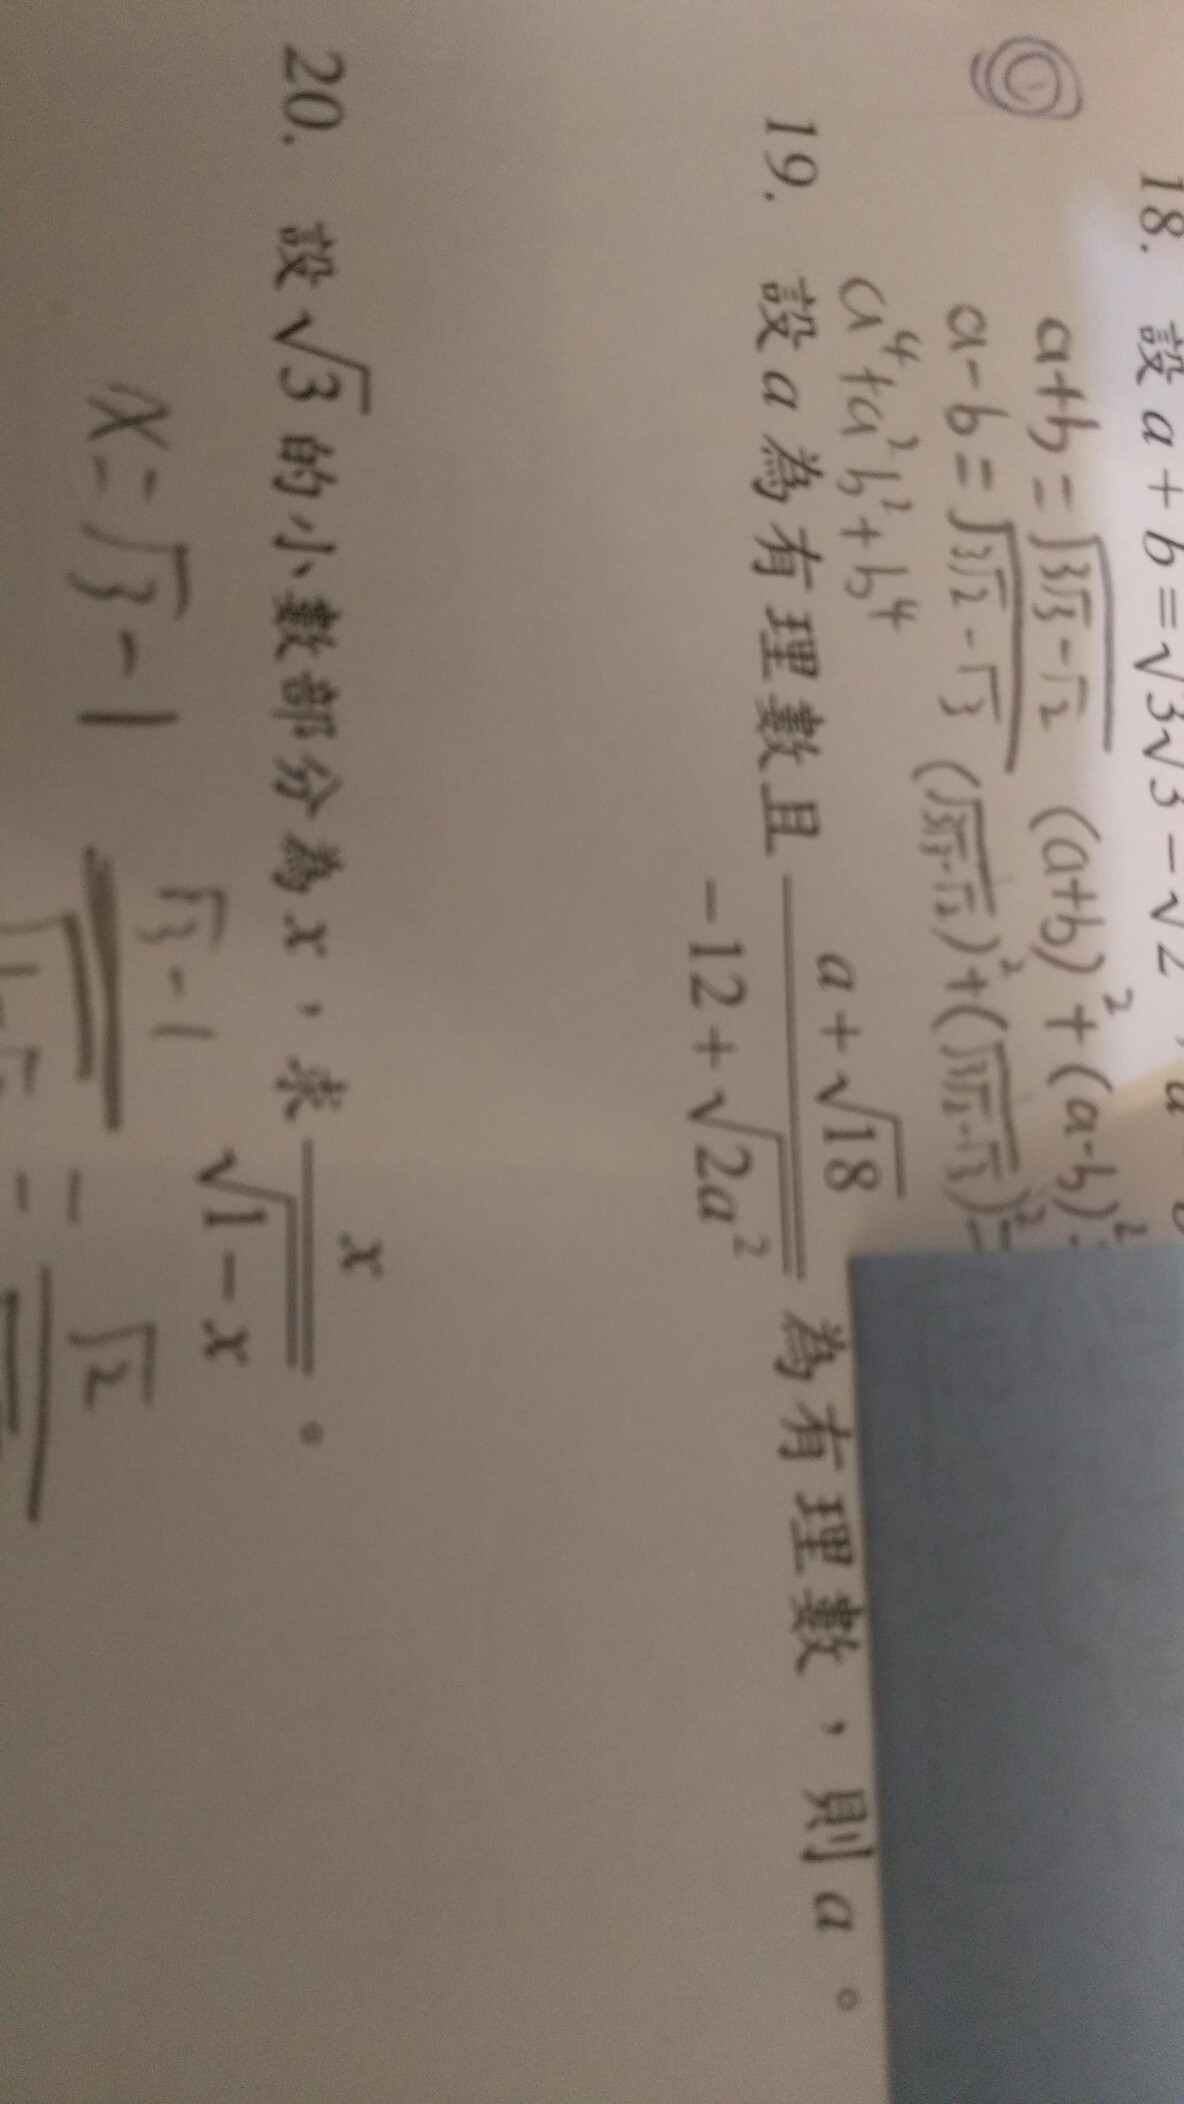 18. 設 a + b = √3√3 − √2 ,
a+b = √3√3 − √2 (a+b)² + (a-b)²
a-b = √3√2 − √3 (√3√3-√2)² + (√3√2-√3)² =
a⁴ + a²b² + b⁴
19. 設 a 為有理數且 (a + √18)/(−12 + √2a²) 為有理數，則 a 。
20. 設 √3 的小數部分為 x ，求 x/√1 − x 。
x = √3 − 1
√3 − 1
√2